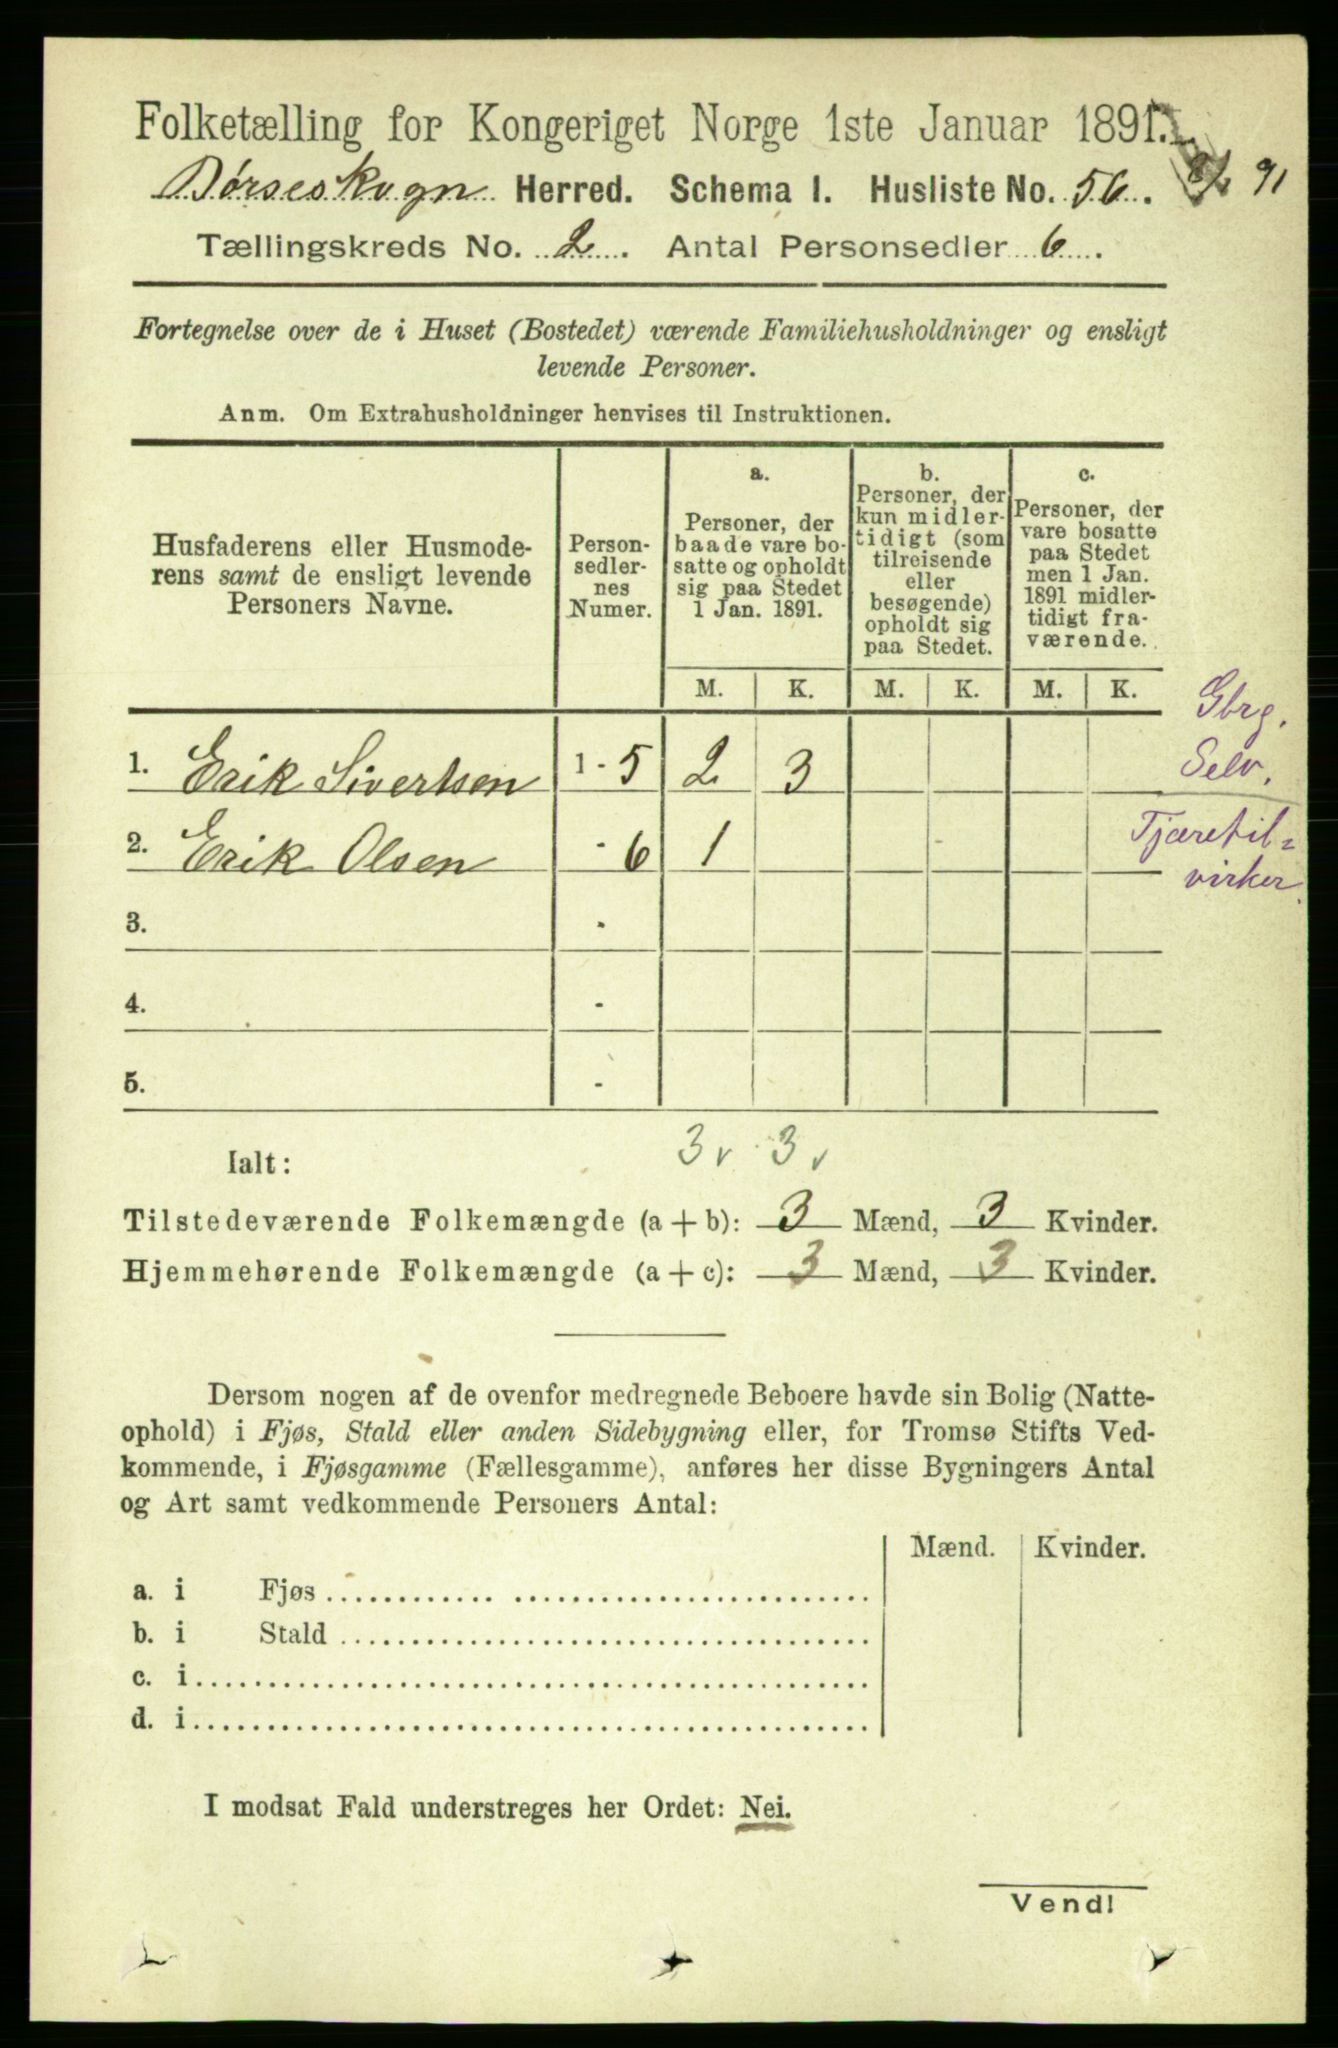 Folketælling for Kongeriget Norge 1ste Januar 1891.
Børseskogn Herred. Schema I. Husliste No. 56. 91
Tællingskreds No. 2. Antal Personsedler 6.
Fortegnelse over de i Huset (Bostedet) værende Familiehusholdninger og ensligt
levende Personer.
Anm. Om Extrahusholdninger henvises til Instruktionen.
Husfaderens eller Husmode-
rens samt de ensligt levende
Personers Navne.
Person-
sedler-
nes
Numer.
a.
Personer, der
baade vare bo-
satte og opholdt
sig paa Stedet
1 Jan. 1891.
b.
Personer, der
kun midler-
tidigt (som
tilreisende
eller
besøgende)
opholdt sig
paa Stedet.
c.
Personer, der
vare bosatte
paa Stedet
men 1 Jan.
1891 midler-
tidigt fra-
værende.
M. K. M. K. M. K.
Gbrg.
Selv.
1. Erik Sivertsen 1 - 5 2 3
Tjæretil=
virker
2. Erik Olsen - 6 1
3. -
4. -
5. -
Ialt: 3 v 3 v
Tilstedeværende Folkemængde (a + b): 3 Mænd, 3 Kvinder.
Hjemmehørende Folkemængde (a + c): 3 Mænd, 3 Kvinder.
Dersom nogen af de ovenfor medregnede Beboere havde sin Bolig (Natte-
ophold) i Fjøs, Stald eller anden Sidebygning eller, for Tromsø Stifts Ved-
kommende, i Fjøsgamme (Fællesgamme), anføres her disse Bygningers Antal
og Art samt vedkommende Personers Antal:
Mænd. Kvinder.
a. i Fjøs
b. i Stald
c. i
d. i
I modsat Fald understreges her Ordet: Nei.
Vend!